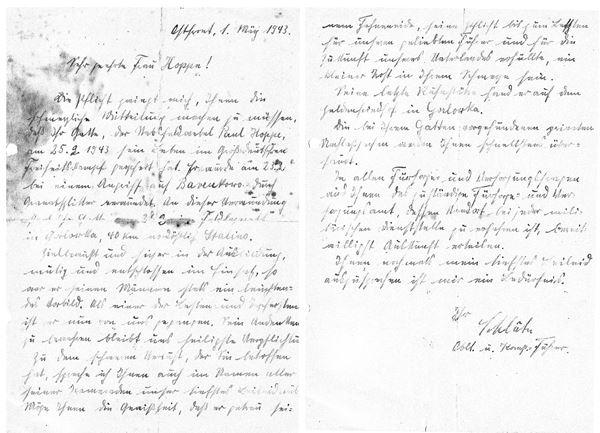 Ostfront, 1. März 1943.
Sehr geehrte Frau Hoppe!
Die Pflicht zwingt mich, Ihnen die
schmerzliche Mitteilung machen zu müssen,
daß Ihr Gatte, der Paul Hoppe,
am 25.2.1943 sein Leben im Großdeutschen
Freiheitskampf geopfert hat. Er wurde am
bei einem Angriff auf Barenkowo durch
verwundet. An dieser Verwundung
in Gorlowka, 40 km nördlich Stalino.
und sicher in der Ausbildung,
mutig und entschlossen im Einsatz, so
war er seinen Männern stets ein leuchten-
des Vorbild. Als einer der Besten und
ist er nun von uns gegangen. Sein Andenken
zu bleibt uns heiligste Verpflichtung
Zu dem schweren Verlust, der Sie betroffen
hat, spreche ich Ihnen auch im Namen aller
seiner Kameraden unser tiefstes Beileid aus.
Möge Ihnen die Gewißheit, daß er getreu sei-
nem Fahneneide, seine Pflicht bis zum Letzten
für unseren geliebten Führer und für die
Zukunft unseres Vaterlandes erfüllte, ein
kleiner Trost in Ihrem Schmerze sein.
Seine letzte Ruhestätte fand er auf dem
Heldenfriedhof in Gorlowka.
Die bei Ihrem Gatten vorgefundenen
werden Ihnen schnellstens über-
sandt.
In allen Fürsorge- und Versorgungsfragen
wird Ihnen das zuständige Fürsorge- und Ver-
sorgungsamt, dessen Standort bei jeder mili-
tärischen Dienststelle zu erfahren ist, bereit-
willigst Auskunft erteilen.
Ihnen nochmals mein tiefstes Beileid
auszusprechen ist mir ein Bedürfnis.
Ihr
Oblt. u. Komp. Führer.